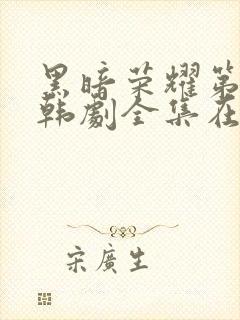 黑暗荣耀第
韩劇全集在
宋廣生